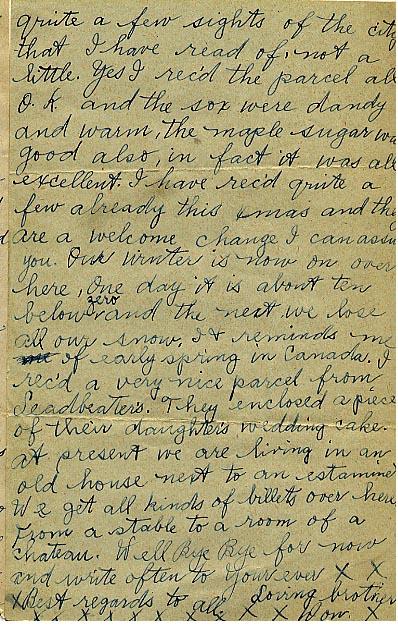 quite a few sights of the city
that I have read of, not a
little. Yes I rec'd the parcel all
O.K. and the sox were dandy
and warm, the maple sugar wa
good also, in fact it was all
excellent. I have rec'd quite a
few already this xmas and the
are a welcome change I can assu
you. Our winter is now on over
here, One day it is about ten
below zero and the next we lose
all our snow, It reminds me
of early spring in Canada. I
rec'd a very nice parcel from
Leadbeaters. They enclosed a piece
of their daughters wedding cake.
At present we are living in an
old house next to an estaminet
We get all kinds of billets over here
From a stable to a room of a
chateau. Well Bye Bye for now
and write often to Your ever x x
x Best regards to all Loving brother
x x x x x x x x